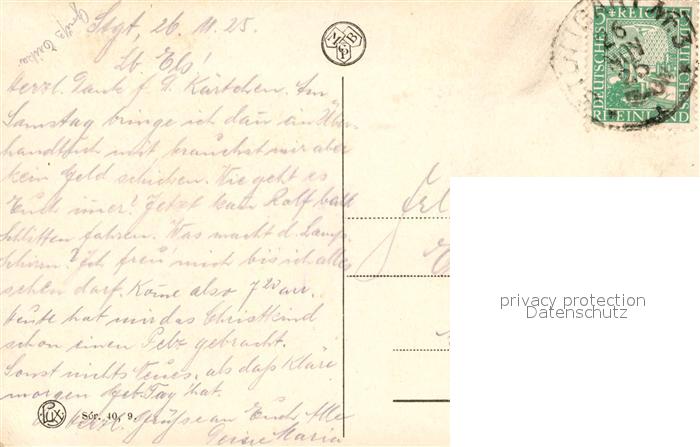 Stgt, 26. 11. 25.
Lb. Els!
Herzl. Dank f. D. Kärtchen. Am
Samstag bringe ich dann ein
handtuch mit, brauchst mir aber
kein Geld schicken. Wie geht es
Euch immer? Jetzt kann Rolf bald
Schlitten fahren. Was macht d. Lamp.
schirm? Ich freu mich bis ich alles
sehen darf. Kome also 7 20 an.
Heute hat mir das Christkind
schon einen Pelz gebracht.
Sonst nichts Neues, als daß Kläre
morgen Geb. Tag hat.
Herzl. Grüße an Euch Alle
Maria
Gruß
MBP
Lux
Sér. 40, 9.
STUTTGART No 3
DEUTSCHES REICH
5
RHEINLAND
privacy protection
Datenschutz